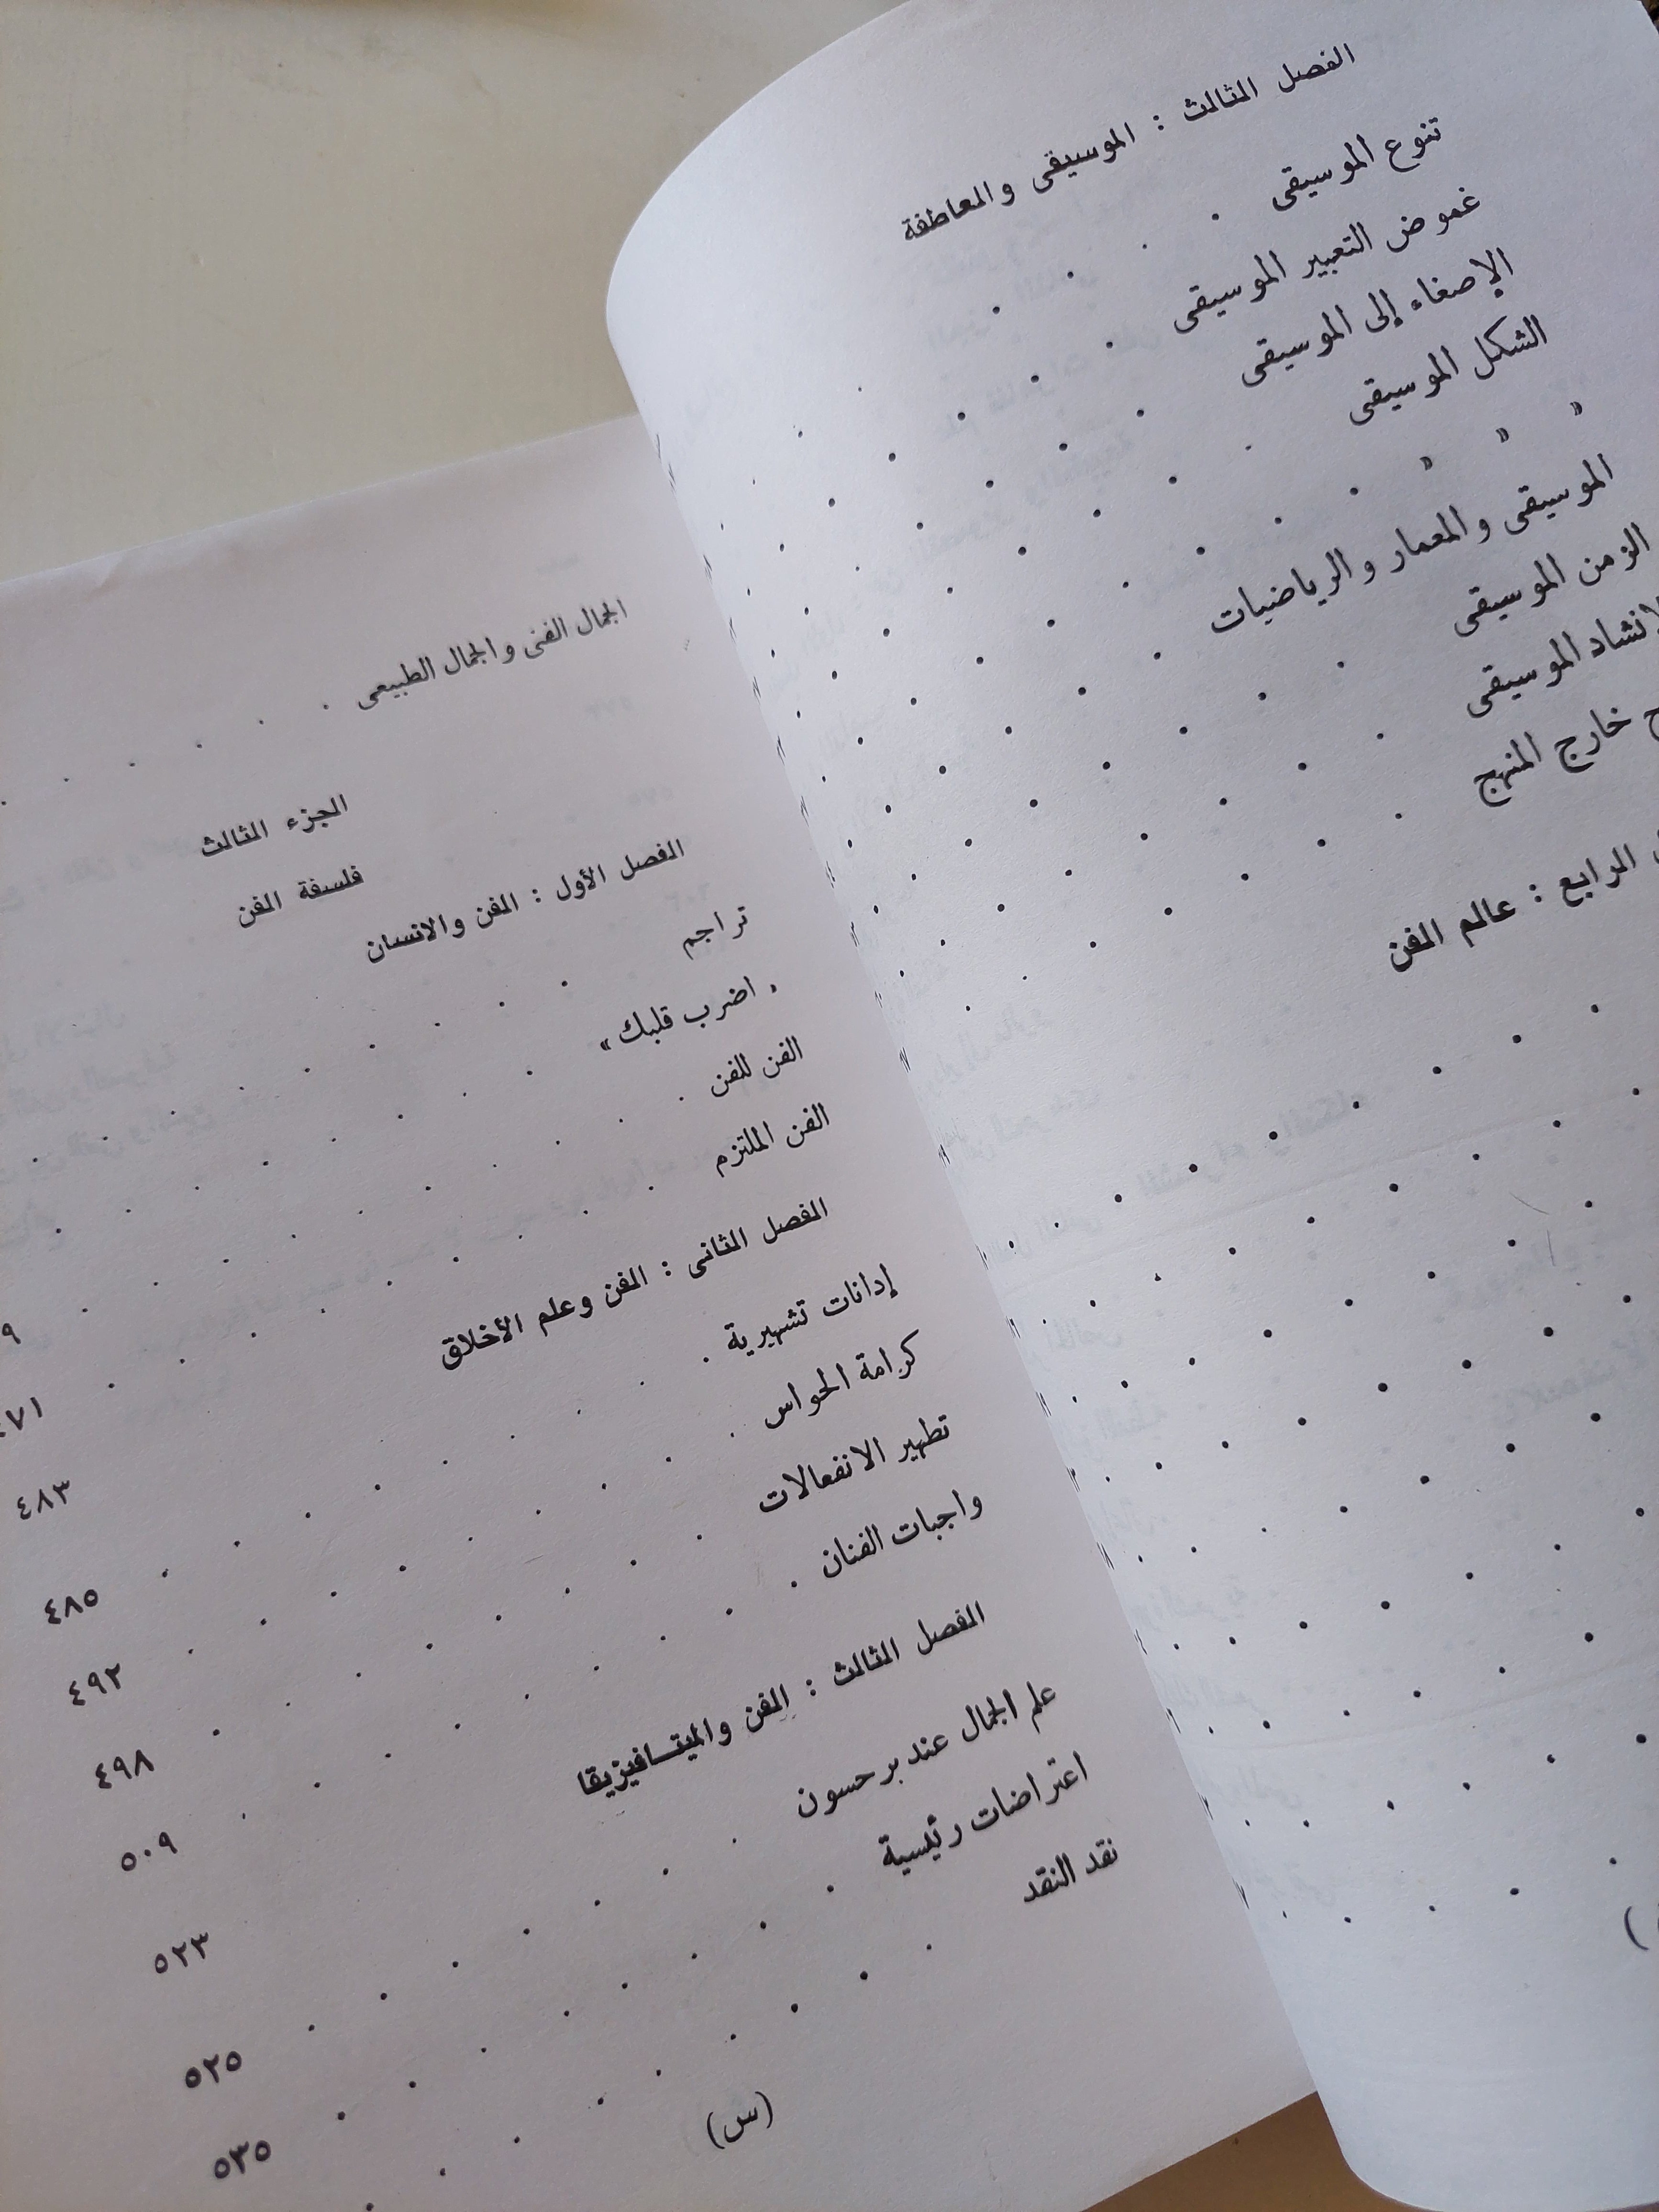 الفصل الثالث : الموسيقى والعاطفة
تنوع الموسيقى . . . .
غموض التعبير الموسيقى . . . .
الإصغاء إلى الموسيقى . . . .
الشكل الموسيقى . . . .
» » » . . . .
الموسيقى والمعمار والرياضيات . . . .
الزمن الموسيقى . . . .
الانشاد الموسيقى . . . .
خارج المنهج . . . .
الرابع : عالم الفن
الجمال الفنى والجمال الطبيعى . . . .
الجزء الثالث
فلسفة الفن
الفصل الأول : الفن والانسان
تراجم . . . .
« اضرب قلبك » . . . .
الفن للفن . . . .
الفن الملتزم . . . .
الفصل الثانى : الفن وعلم الأخلاق
إدانات تشهيرية . . . . ٤٨٣
كرامة الحواس . . . . ٤٨٥
تطهير الانفعالات . . . . ٤٩٢
واجبات الفنان . . . . ٤٩٨
الفصل الثالث : الفن والميتافيزيقا ٥٠٩
علم الجمال عند برحسون . . . . ٥٢٣
اعتراضات رئيسية . . . . ٥٢٥
نقد النقد . . . . ٥٣٥
(س)